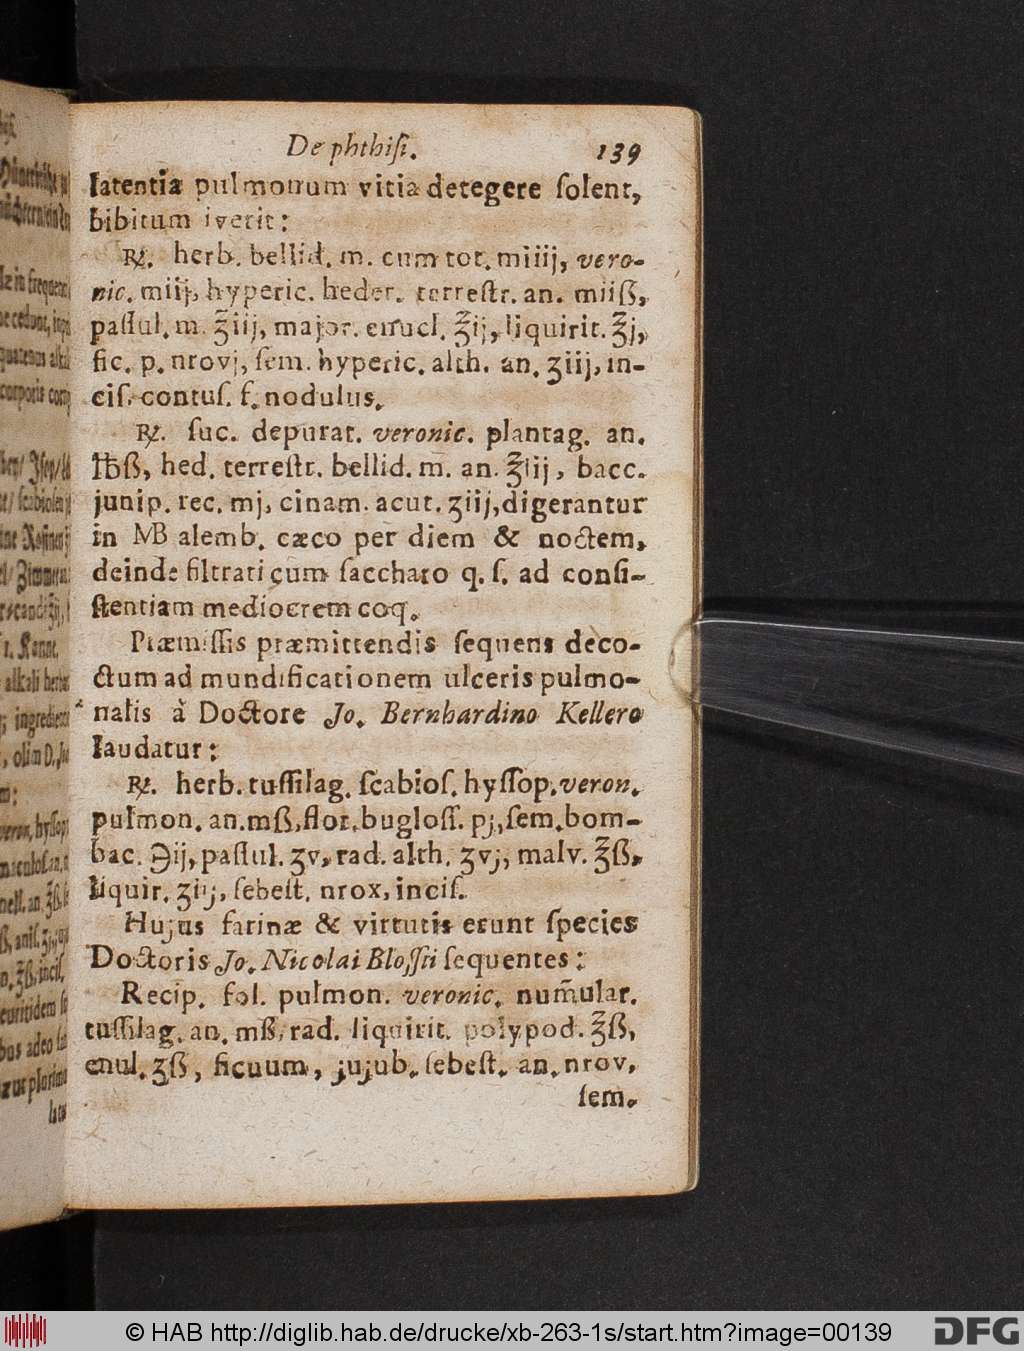 De phthisi. 139
latentia pulmonum vitia detegere solent,
bibitum iverit:
℞. herb. bellid. m. cum tot. miiij, vero-
nic. miij, hyperic. heder. terrestr. an. miiß,
passul. m. ℥iij, major. enucl. ℥ij, liquirit. ℥j,
fic. p. nrovj, sem. hyperic. alth. an. ʒiij, in-
cis. contus. f. nodulus.
℞. suc. depurat. veronic. plantag. an.
℔ß, hed. terrestr. bellid. m̄. an. ℥iij, bacc.
junip. rec. mj, cinam. acut. ʒiij, digerantur
in MB alemb. cæco per diem & noctem,
deinde filtrati cum saccharo q. s. ad consi-
stentiam mediocrem coq.
Præmissis præmittendis sequens deco-
ctum ad mundificationem ulceris pulmo-
nalis à Doctore Jo. Bernhardino Kellero
laudatur:
℞. herb. tussilag. scabios. hyssop. veron.
pulmon. an. mß, flor. bugloss. pj, sem. bom-
bac. ℈ij, passul. ʒv, rad. alth. ʒvj, malv. ℥ß,
liquir. ʒiij, sebest. nrox, incis.
Hujus farinæ & virtutis erunt species
Doctoris Jo. Nicolai Blossii sequentes:
Recip. fol. pulmon. veronic. num̄ular.
tussilag. an. mß, rad. liquirit. polypod. ℥ß,
enul. ʒß, ficuum, jujub. sebest. an. nrov,
sem.
© HAB http://diglib.hab.de/drucke/xb-263-1s/start.htm?image=00139
DFG